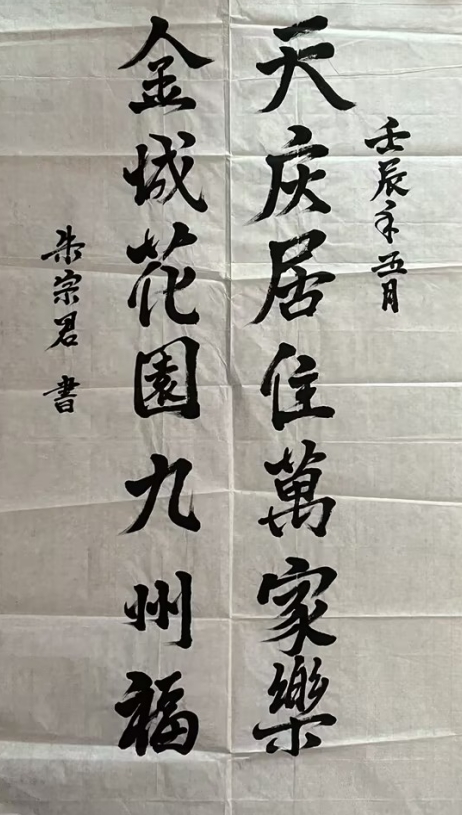 壬辰年五月
天庆居住萬家樂
金城花園九州福
朱宗君 書